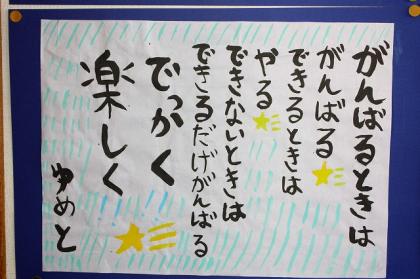 がんばるときは
がんばる
できるときは
やる
できないときは
できるだけがんばる
でっかく
楽しく
ゆめと